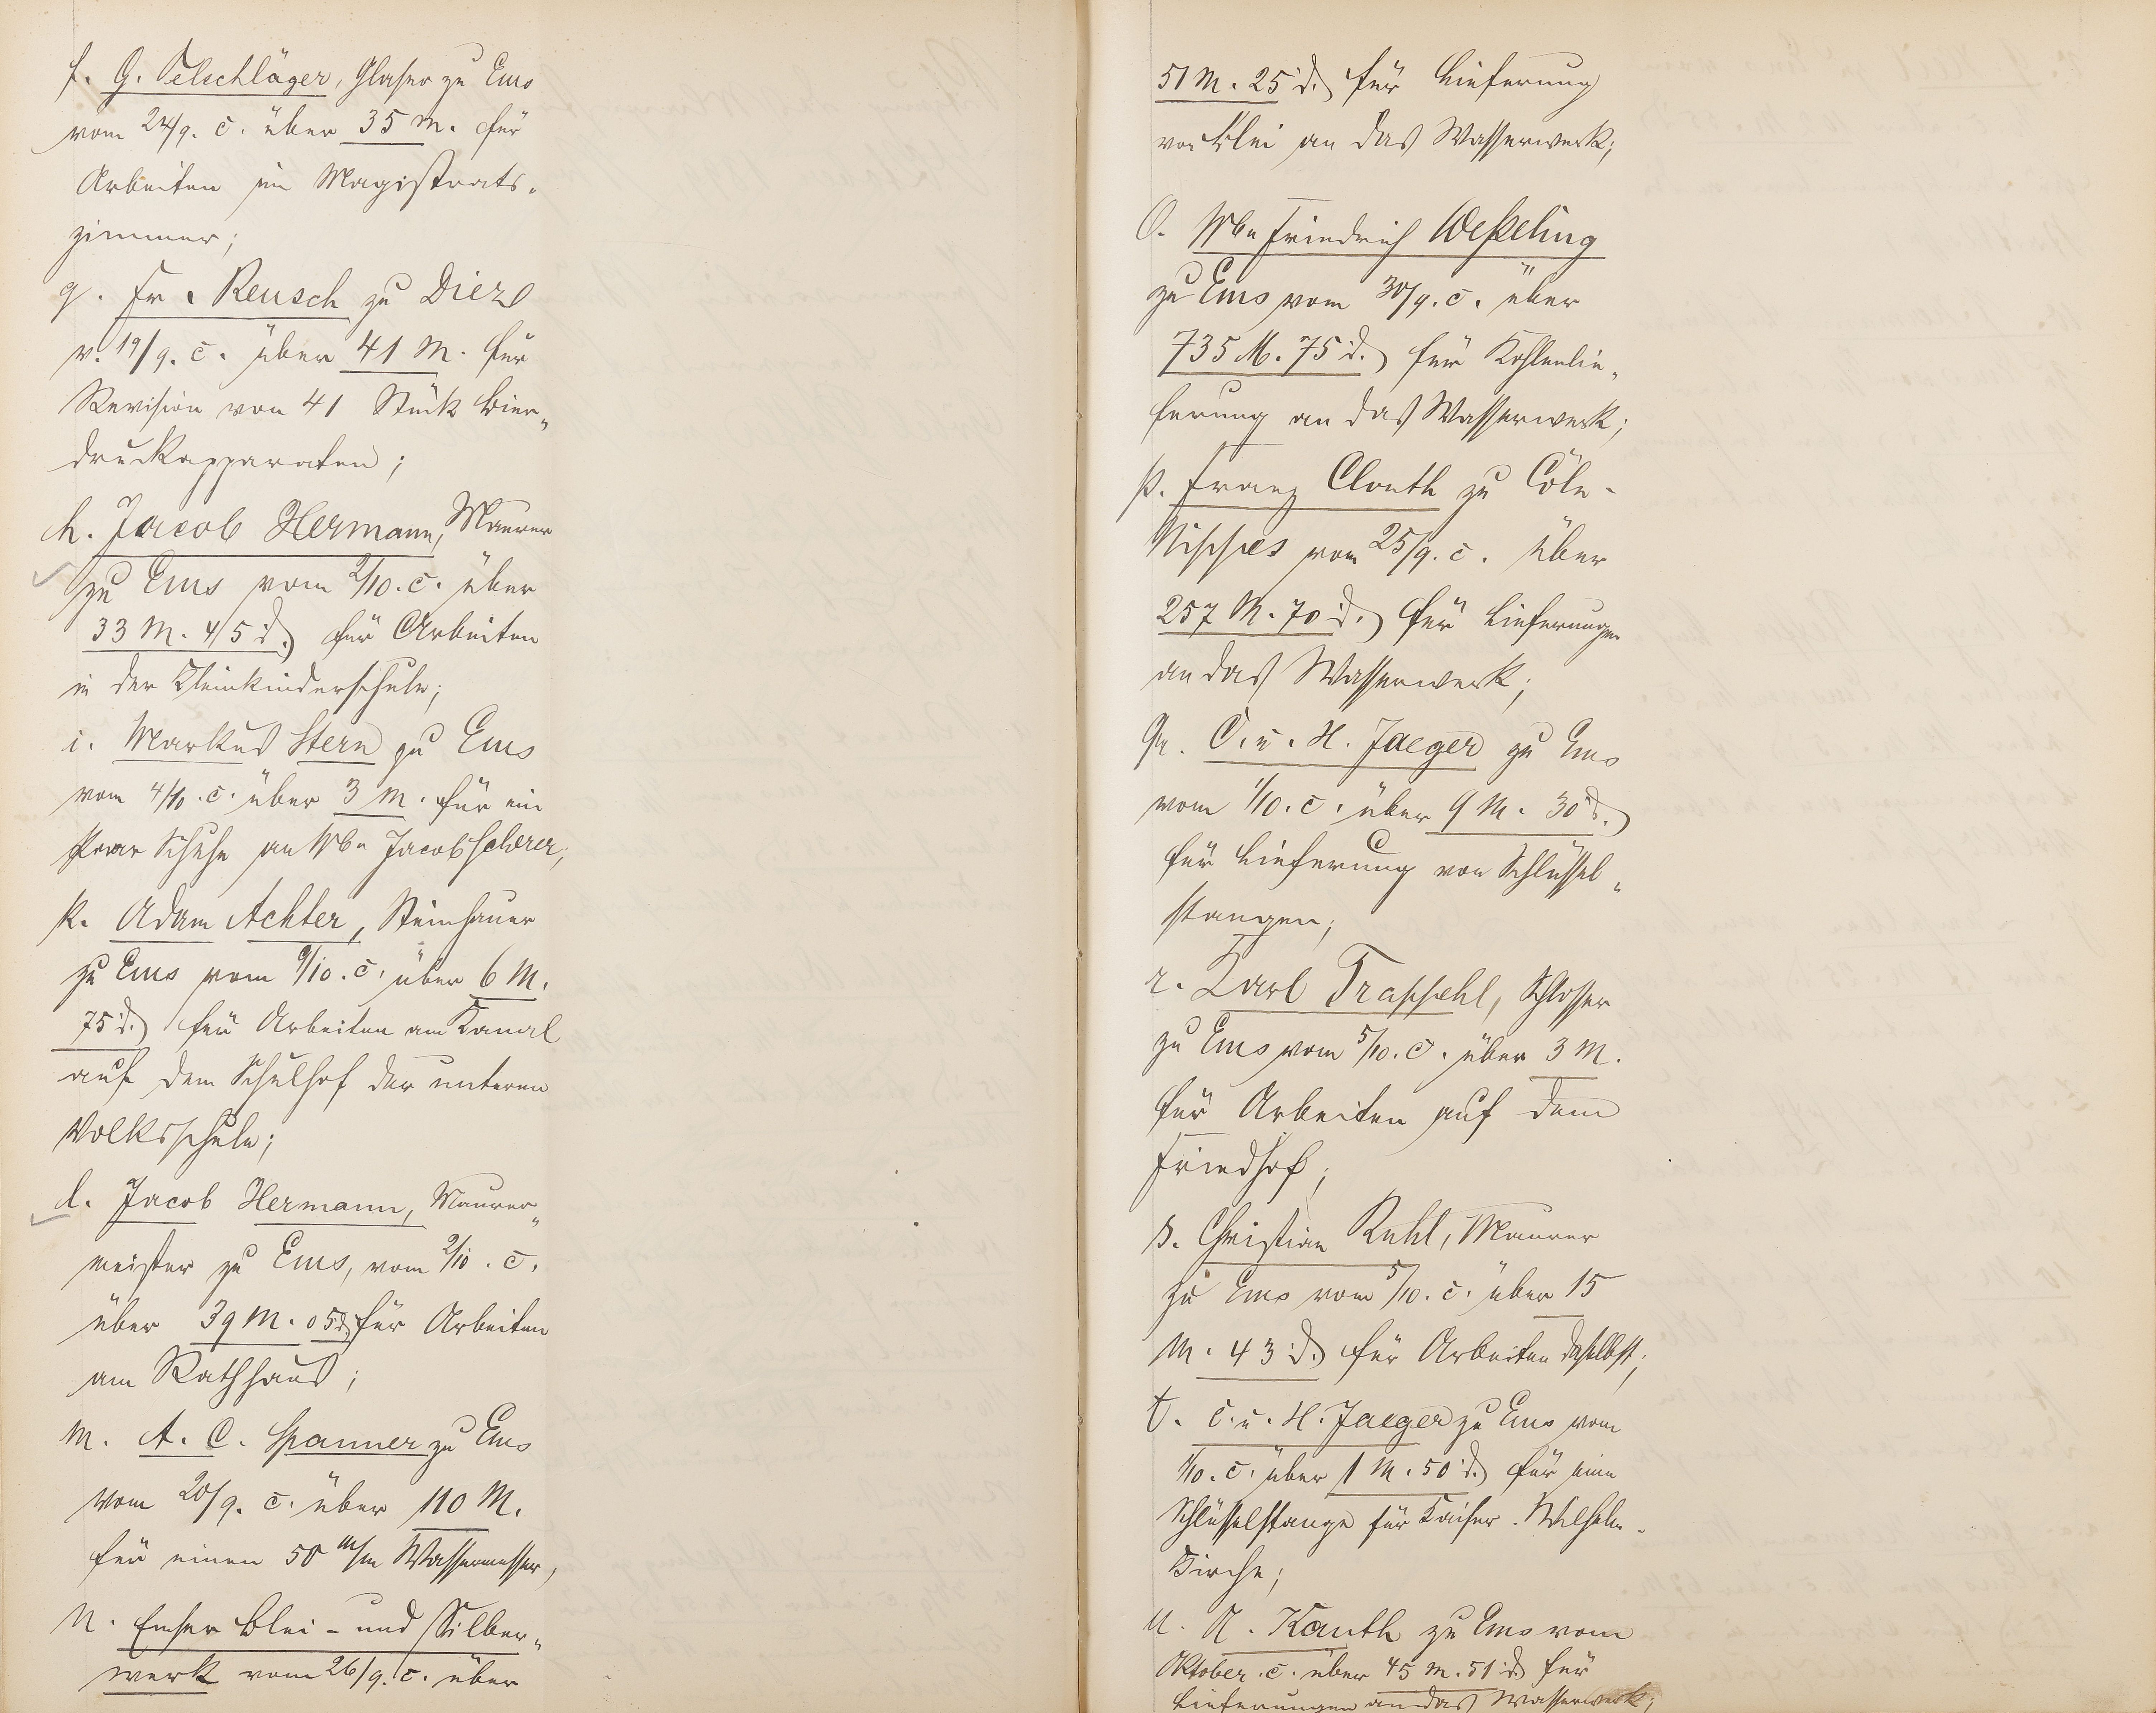 f. G. Oelschläger, Glaser zu Ems
vom 24/9. c. über 35 M. für
Arbeiten im Magistrats-
zimmer;
g. Fr. Reusch zu Diez
v. 19/9. c. über 41 M. für
Revision von 41 Stück Bier-
druckapparaten;
h. Jacob Hermann, Maurer
zu Ems vom 2/10. c. über
33 M. 45 d. für Arbeiten
in der Kleinkinderschule;
i. Markus Stern zu Ems
vom 4/10. c. über 3 M. für ein
Paar Schuhe an Wwe Jacob Scherer;
k. Adam Achter, Steinhauer
zu Ems vom /10. c. über 6 M.
75 d. für Arbeiten am Kanal
auf dem Schulhof der unteren
Volksschule;
l. Jacob Hermann, Maurer-
meister zu Ems, vom 2/10. c.
über 39 M. 05 d. für Arbeiten
am Rathhaus;
m. A. C. Spanner zu Ems
vom 20/9. c. über 110 M.
für einen 50 m/m Wassermesser,
n. Emser Blei- und Silber-
werk vom 26/9. c. über
51 M. 25 d. für Lieferung
von Blei an das Wasserwerk;
O. Wwe Friedrich Weßeling
zu Ems vom 30/9. c. über
735 M. 75 d. für Kohlenlie-
ferung an das Wasserwerk;
p. Franz Clouth zu Cöln-
Nippes vom 25/9. c. über
257 M. 70 d. für Lieferungen
an das Wasserwerk;
q. C. u. H. Jaeger zu Ems
vom 1/10. c. über 9 M. 30 d.
für Lieferung von Schlüssel-
stangen;
r. Karl Trappehl, Schlosser
zu Ems vom 5/10. c. über 3 M.
für Arbeiten auf dem
Friedhof;
s. Christian Ruhl, Maurer
zu Ems vom 5/10. c. über 15
M. 43 d. für Arbeiten daselbst;
t. C. u. H. Jaeger zu Ems vom
1/10. c. über 1 M. 50 d. für eine
Schlüsselstange für Kaiser-Wilhelm-
Kirche;
u. A. Kauth zu Ems vom
Oktober c. über 45 M. 51 d. für
Lieferungen an das Wasserwerk;